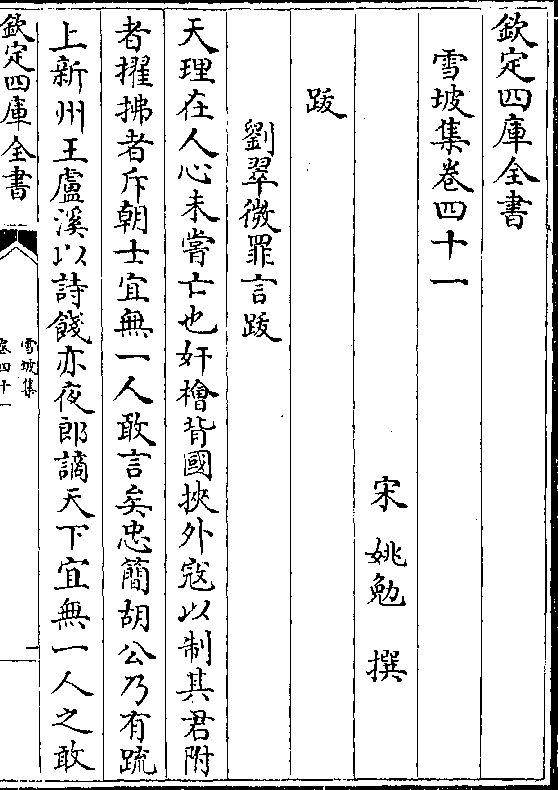 欽定四庫全書
雪坡集卷四十一
宋 姚勉 撰
跋
劉翠微罪言跋
天理在人心未嘗亡也奸檜背國挾外寇以制其君附
者擢拂者斥朝士宜無一人敢言矣忠簡胡公乃有䟽
上新州王盧溪以詩餞亦夜郎謫天下宜無一人之敢
欽定四庫全書
雪坡集
卷四十一
一